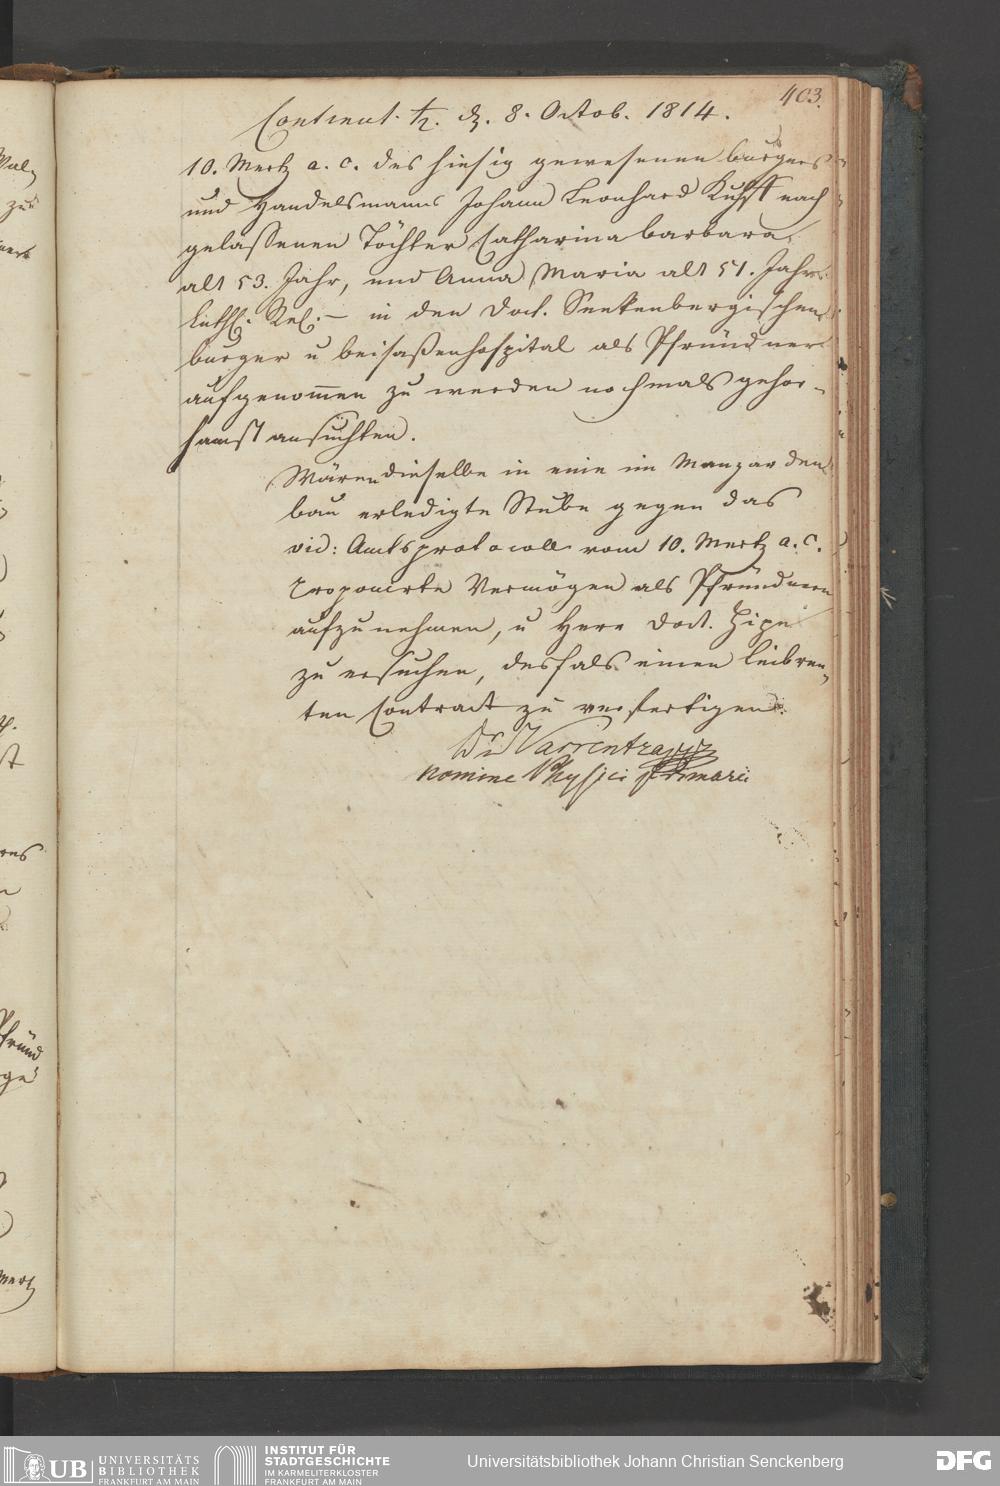 403.
Continuat. d. 8. Octob. 1814.
10. Mertz a. c. des hiesig gewesenen burgers
und Handelsmanns Johann Leonhard nach
gelaßenen Töchter Catharina barbara
alt 53. Jahr, und Anna Maria alt 51. Jahr
luth. Rel. – in den Doct. Senkenbergischen
burger u beisaßenhospital als Pfründner
aufgenom̅en zu werden nochmals gehor-
samst ansuchten.
Wären dieselbe in eine im Manzarden
bau erledigte Stube gegen das
vid: Amtsprotocoll vom 10. Mertz a. c.
proponirte Vermögen als Pfründnern
aufzunehmen, u Herr Doct.
zu ersuchen, desfals einen leibren-
ten Contract zu verfertigen.
Dr Varrentrapp
nomine Physici Primarii
UB UNIVERSITÄTS
BIBLIOTHEK
FRANKFURT AM MAIN
INSTITUT FÜR
STADTGESCHICHTE
IM KARMELITERKLOSTER
FRANKFURT AM MAIN
Universitätsbibliothek Johann Christian Senckenberg
DFG